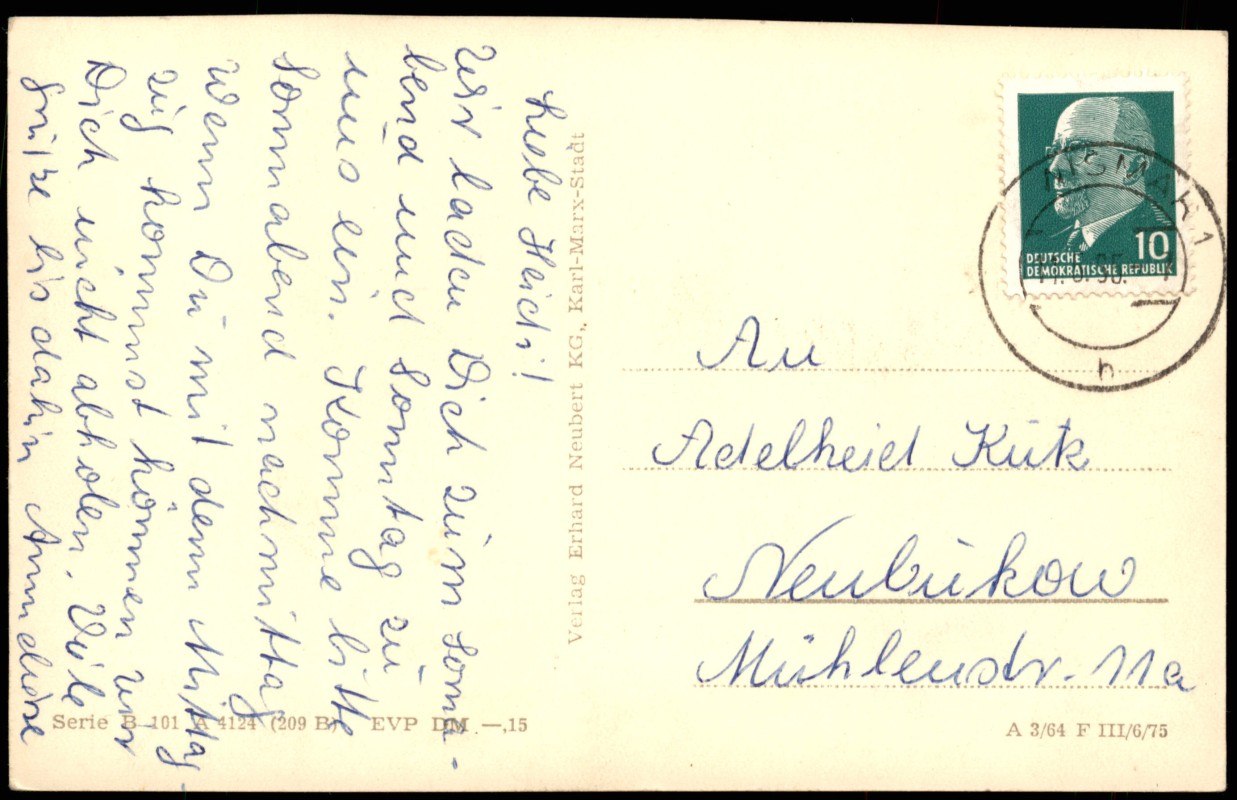 Liebe Heidi!
Wir laden Dich zum Sonna-
bend und Sonntag zu
uns ein. Komme bitte
Sonnabend nachmittag
Wenn Du mit dem Mittag
zug kommst können wir
Dich nicht abholen. Viele
Grüße bis dahin
Verlag Erhard Neubert KG., Karl-Marx-Stadt
Serie B 101 A 4124 (209 B) EVP DM.—,15
WISMAR 1
h
10
DEUTSCHE
DEMOKRATISCHE REPUBLIK
An
Adelheid Kük
Neubukow
Mühlenstr. 11a
A 3/64 F III/6/75